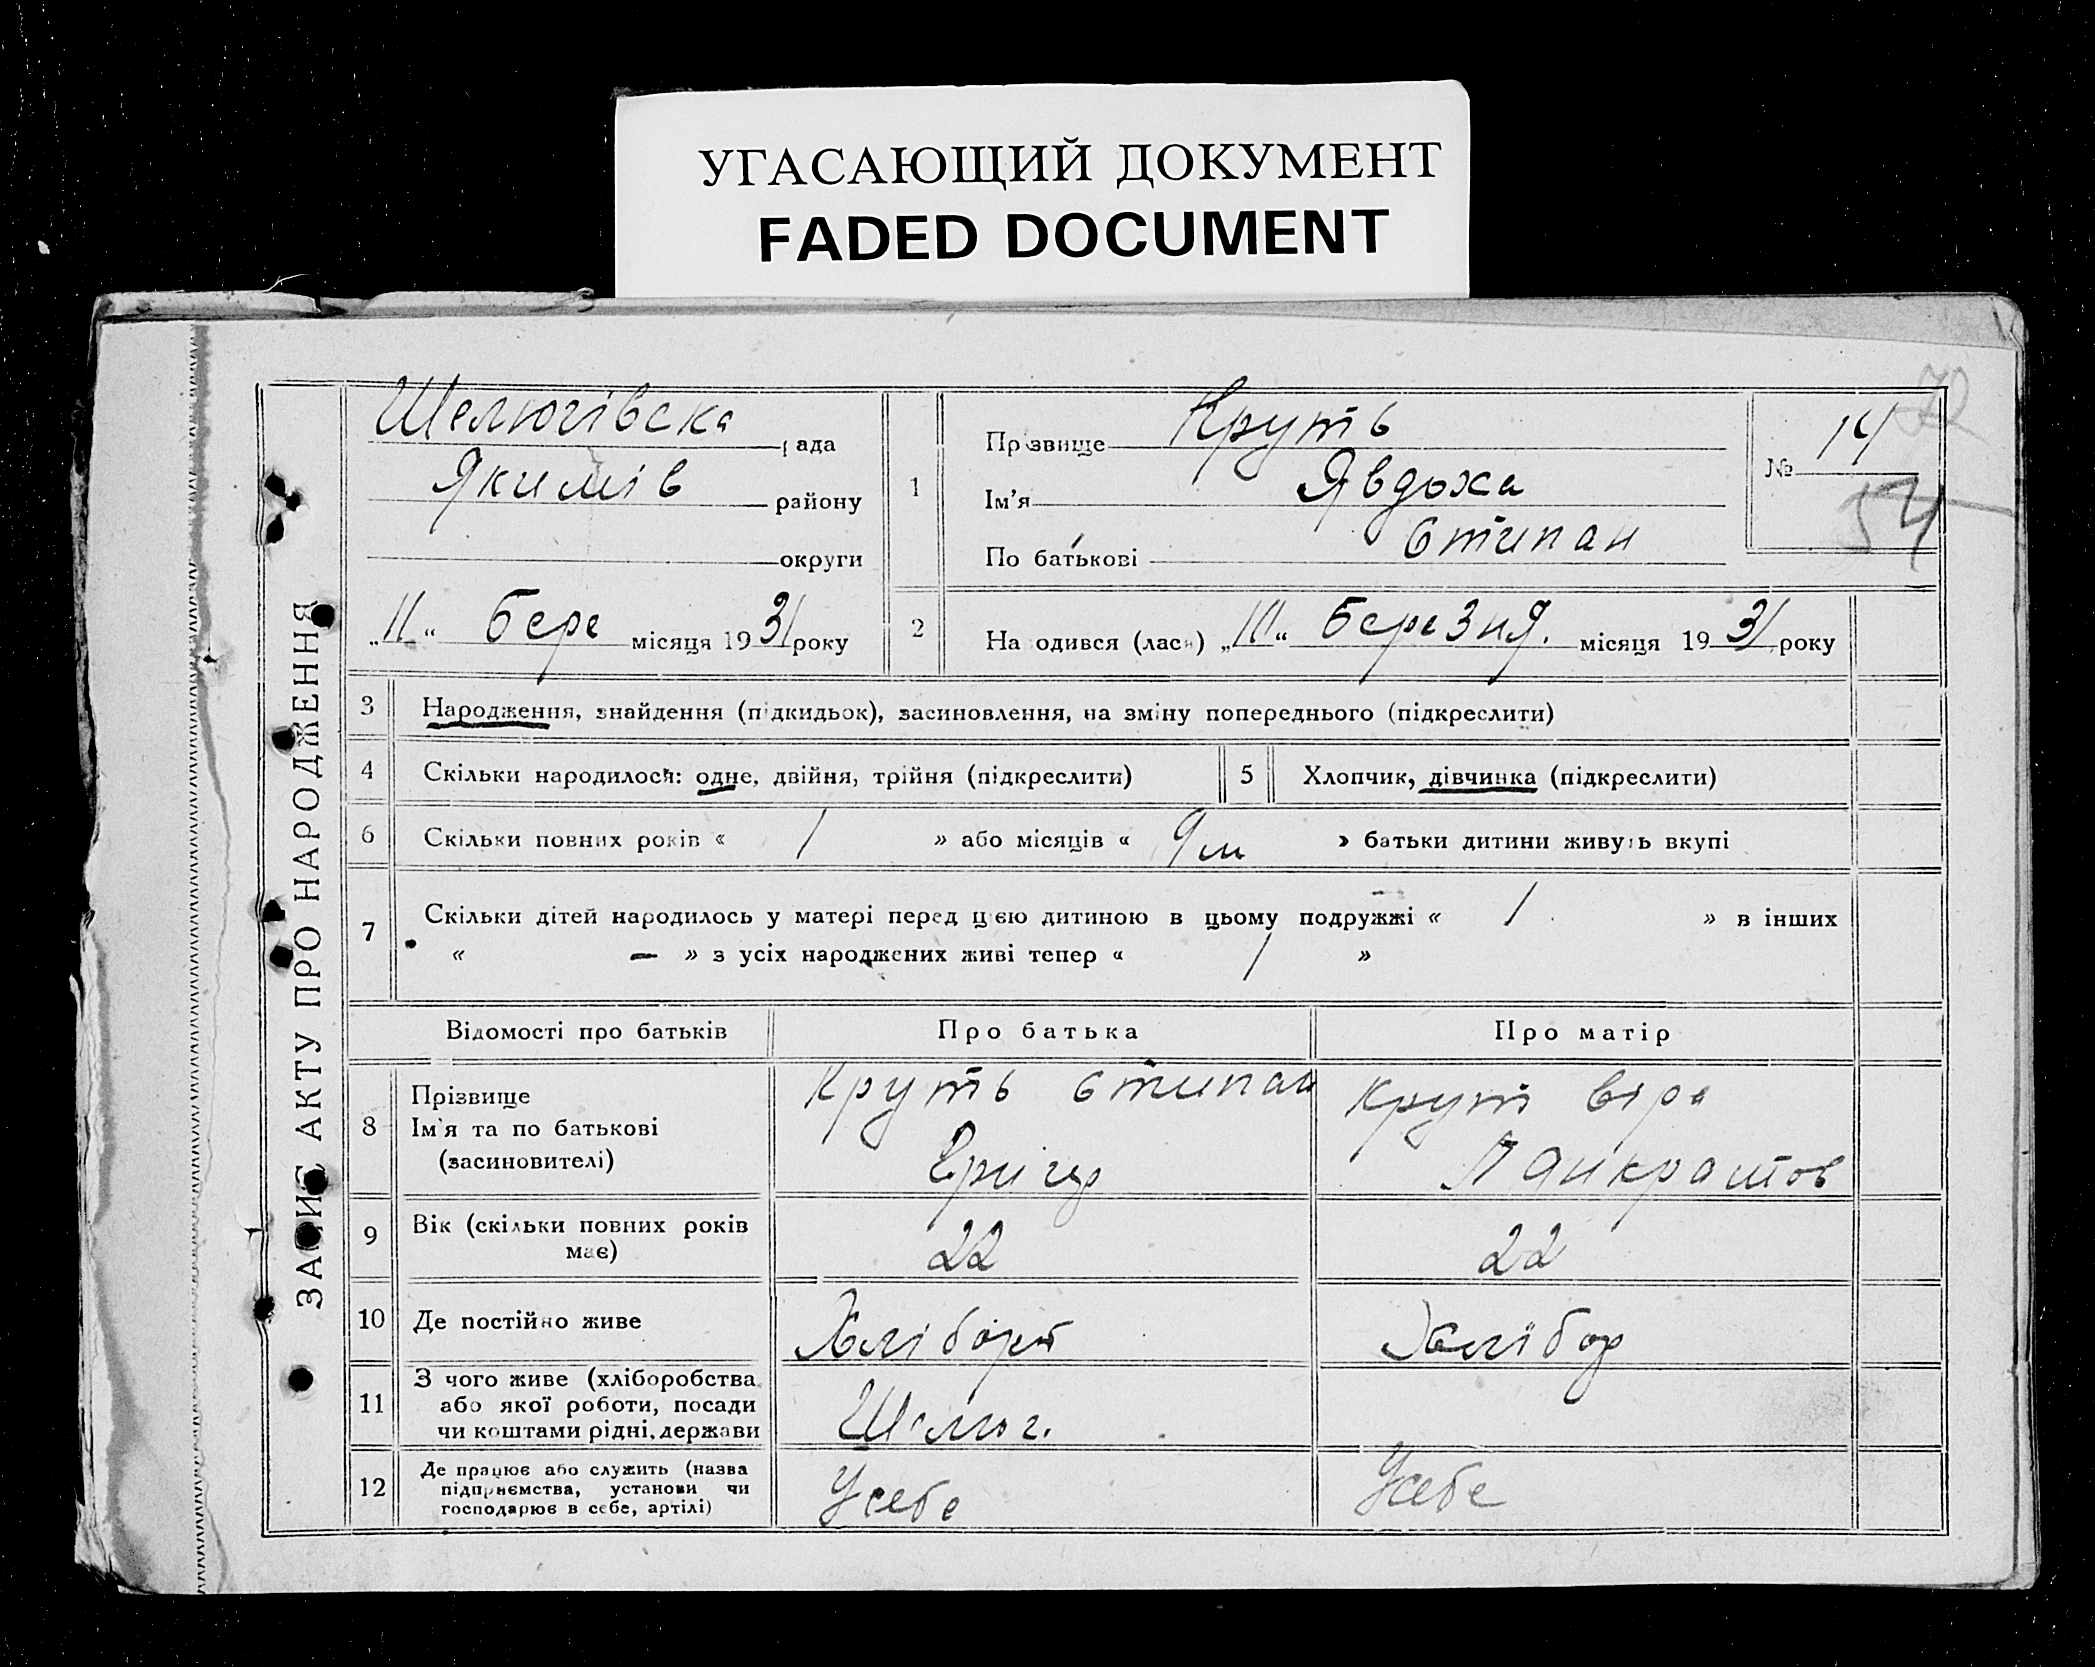 УГАСАЮЩИЙ ДОКУМЕНТ
FADED DOCUMENT
ЗАПИС АКТУ ПРО НАРОДЖЕННЯ
Шелюгівска рада
Якимів району
округи
„11“ бере місяця 1931 року
1
Прізвище Круть
Ім'я Явдоха
По батькові Стипан
№ 14
72
54
2
На одився (лася) „ “ березня. місяця 1931 року
3 Народження, знайдення (підкидьок), засиновлення, на зміну попереднього (підкреслити)
4 Скільки народилося: одне, двійня, трійня (підкреслити)
5 Хлопчик, дівчинка (підкреслити)
6 Скільки повних років « 1 » або місяців « 9 м » батьки дитини живуть вкупі
7 Скільки дітей народилось у матері перед цією дитиною в цьому подружжі « 1 » в інших
« — » з усіх народжених живі тепер « 1 »
Відомості про батьків Про батька Про матір
8 Прізвище
Ім'я та по батькові
(засиновителі)
Круть Стипан
Григор
Крут Віра
Панкратов
9 Вік (скільки повних років
має)
22
22
10 Де постійно живе
Хлібороб
Хлібор
11 З чого живе (хліборобства
або якої роботи, посади
чи коштами рідні, держави
Шелюг.
12 Де працює або служить (назва
підприємства, установи чи
господарює в себе, артілі)
Усебе
Усебе